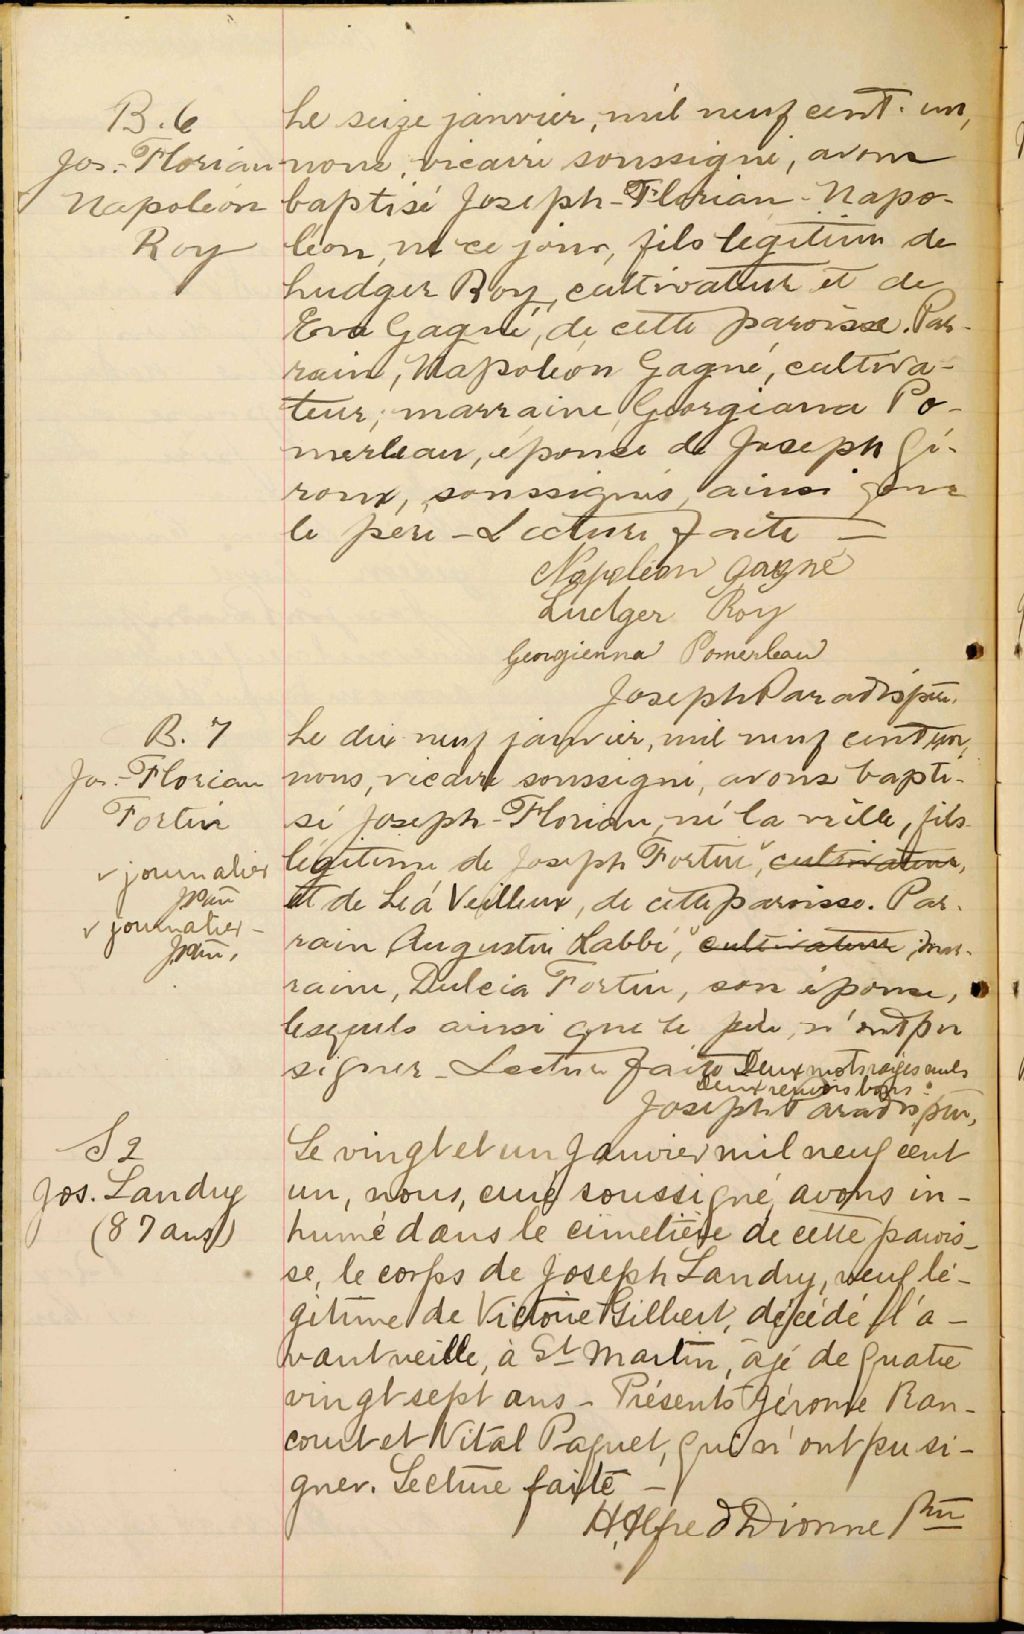 B. 6
Jos.-Florian
Napoléon
Roy
Le seize janvier, mil neuf cent. un,
nous, vicaire soussigné, avons
baptisé Joseph-Florian-Napo-
léon, né ce jour, fils légitime de
Ludger Roy, cultivateur et de
Eva Gagné, de cette paroisse. Par-
rain, Napoléon Gagné, cultiva-
teur, marraine Georgianna Po-
merleau, épouse de Joseph Gi-
roux, soussignés, ainsi que
le père - Lecture faite —
Napoléon Gagné
Ludger Roy
Georgienna Pomerleau
Joseph Paradis ptre.
B. 7
Jos.-Florian
Fortin
v journalier
v journalier -
Le dix neuf janvier, mil neuf cent un,
nous, vicaire soussigné, avons bapti-
sé Joseph-Florian, né la veille, fils
légitime de Joseph Fortin v, cultivateur,
et de Léa Veilleux, de cette paroisse. Par-
rain Augustin Labbé, v cultivateur, mar-
raine, Dulcia Fortin, son épouse,
lesquels ainsi que le père, n'ont pu
signer - Lecture faite Deux mots rayés nuls
Deux renvois bons.
Joseph Paradis ptre,
S 2
Jos. Landry
(87 ans)
Le vingt et un Janvier mil neuf cent
un, nous, curé soussigné, avons in-
humé dans le cimetière de cette parois-
se, le corps de Joseph Landry, veuf lé-
gitime de Victoire Gilbert, décédé l'a-
vant veille, à St Martin, âgé de quatre
vingt sept ans - Présents Jérome Ran-
court et Vital Paquet, qui n'ont pu si-
gner. Lecture faite —
H. Alfred Dionne Ptre